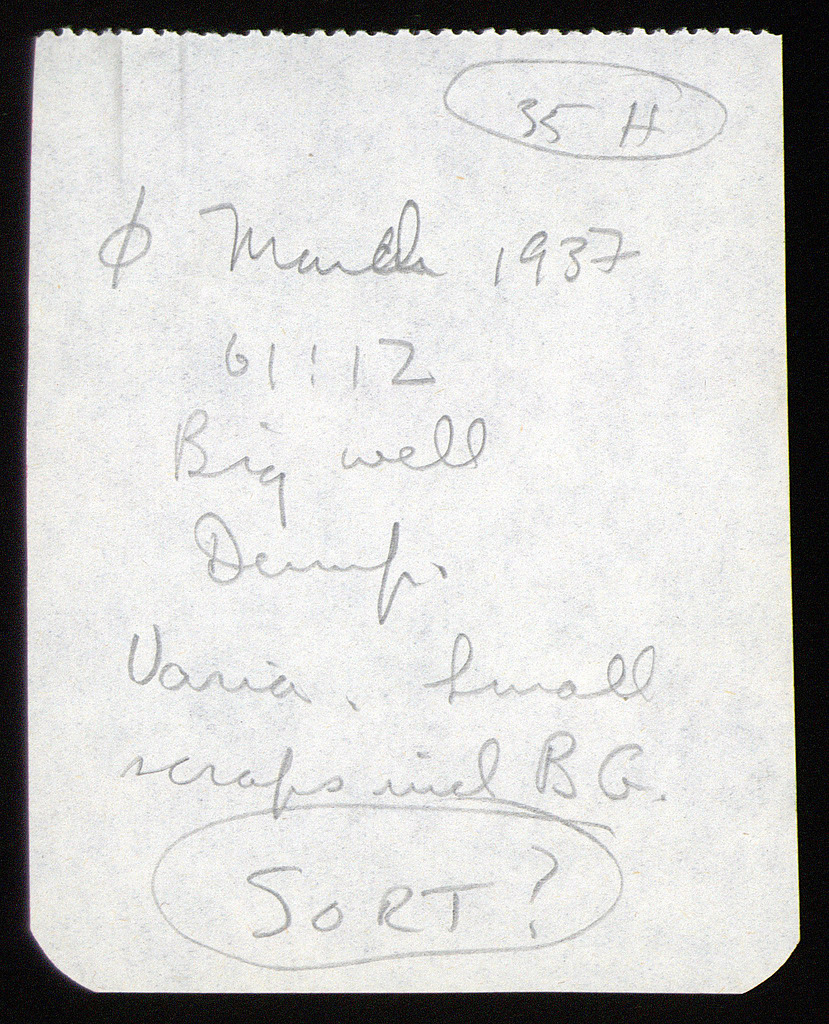 35 H
φ March 1937
61:12
Big well
Dump.
Varia. Small
scraps incl BG.
SORT?